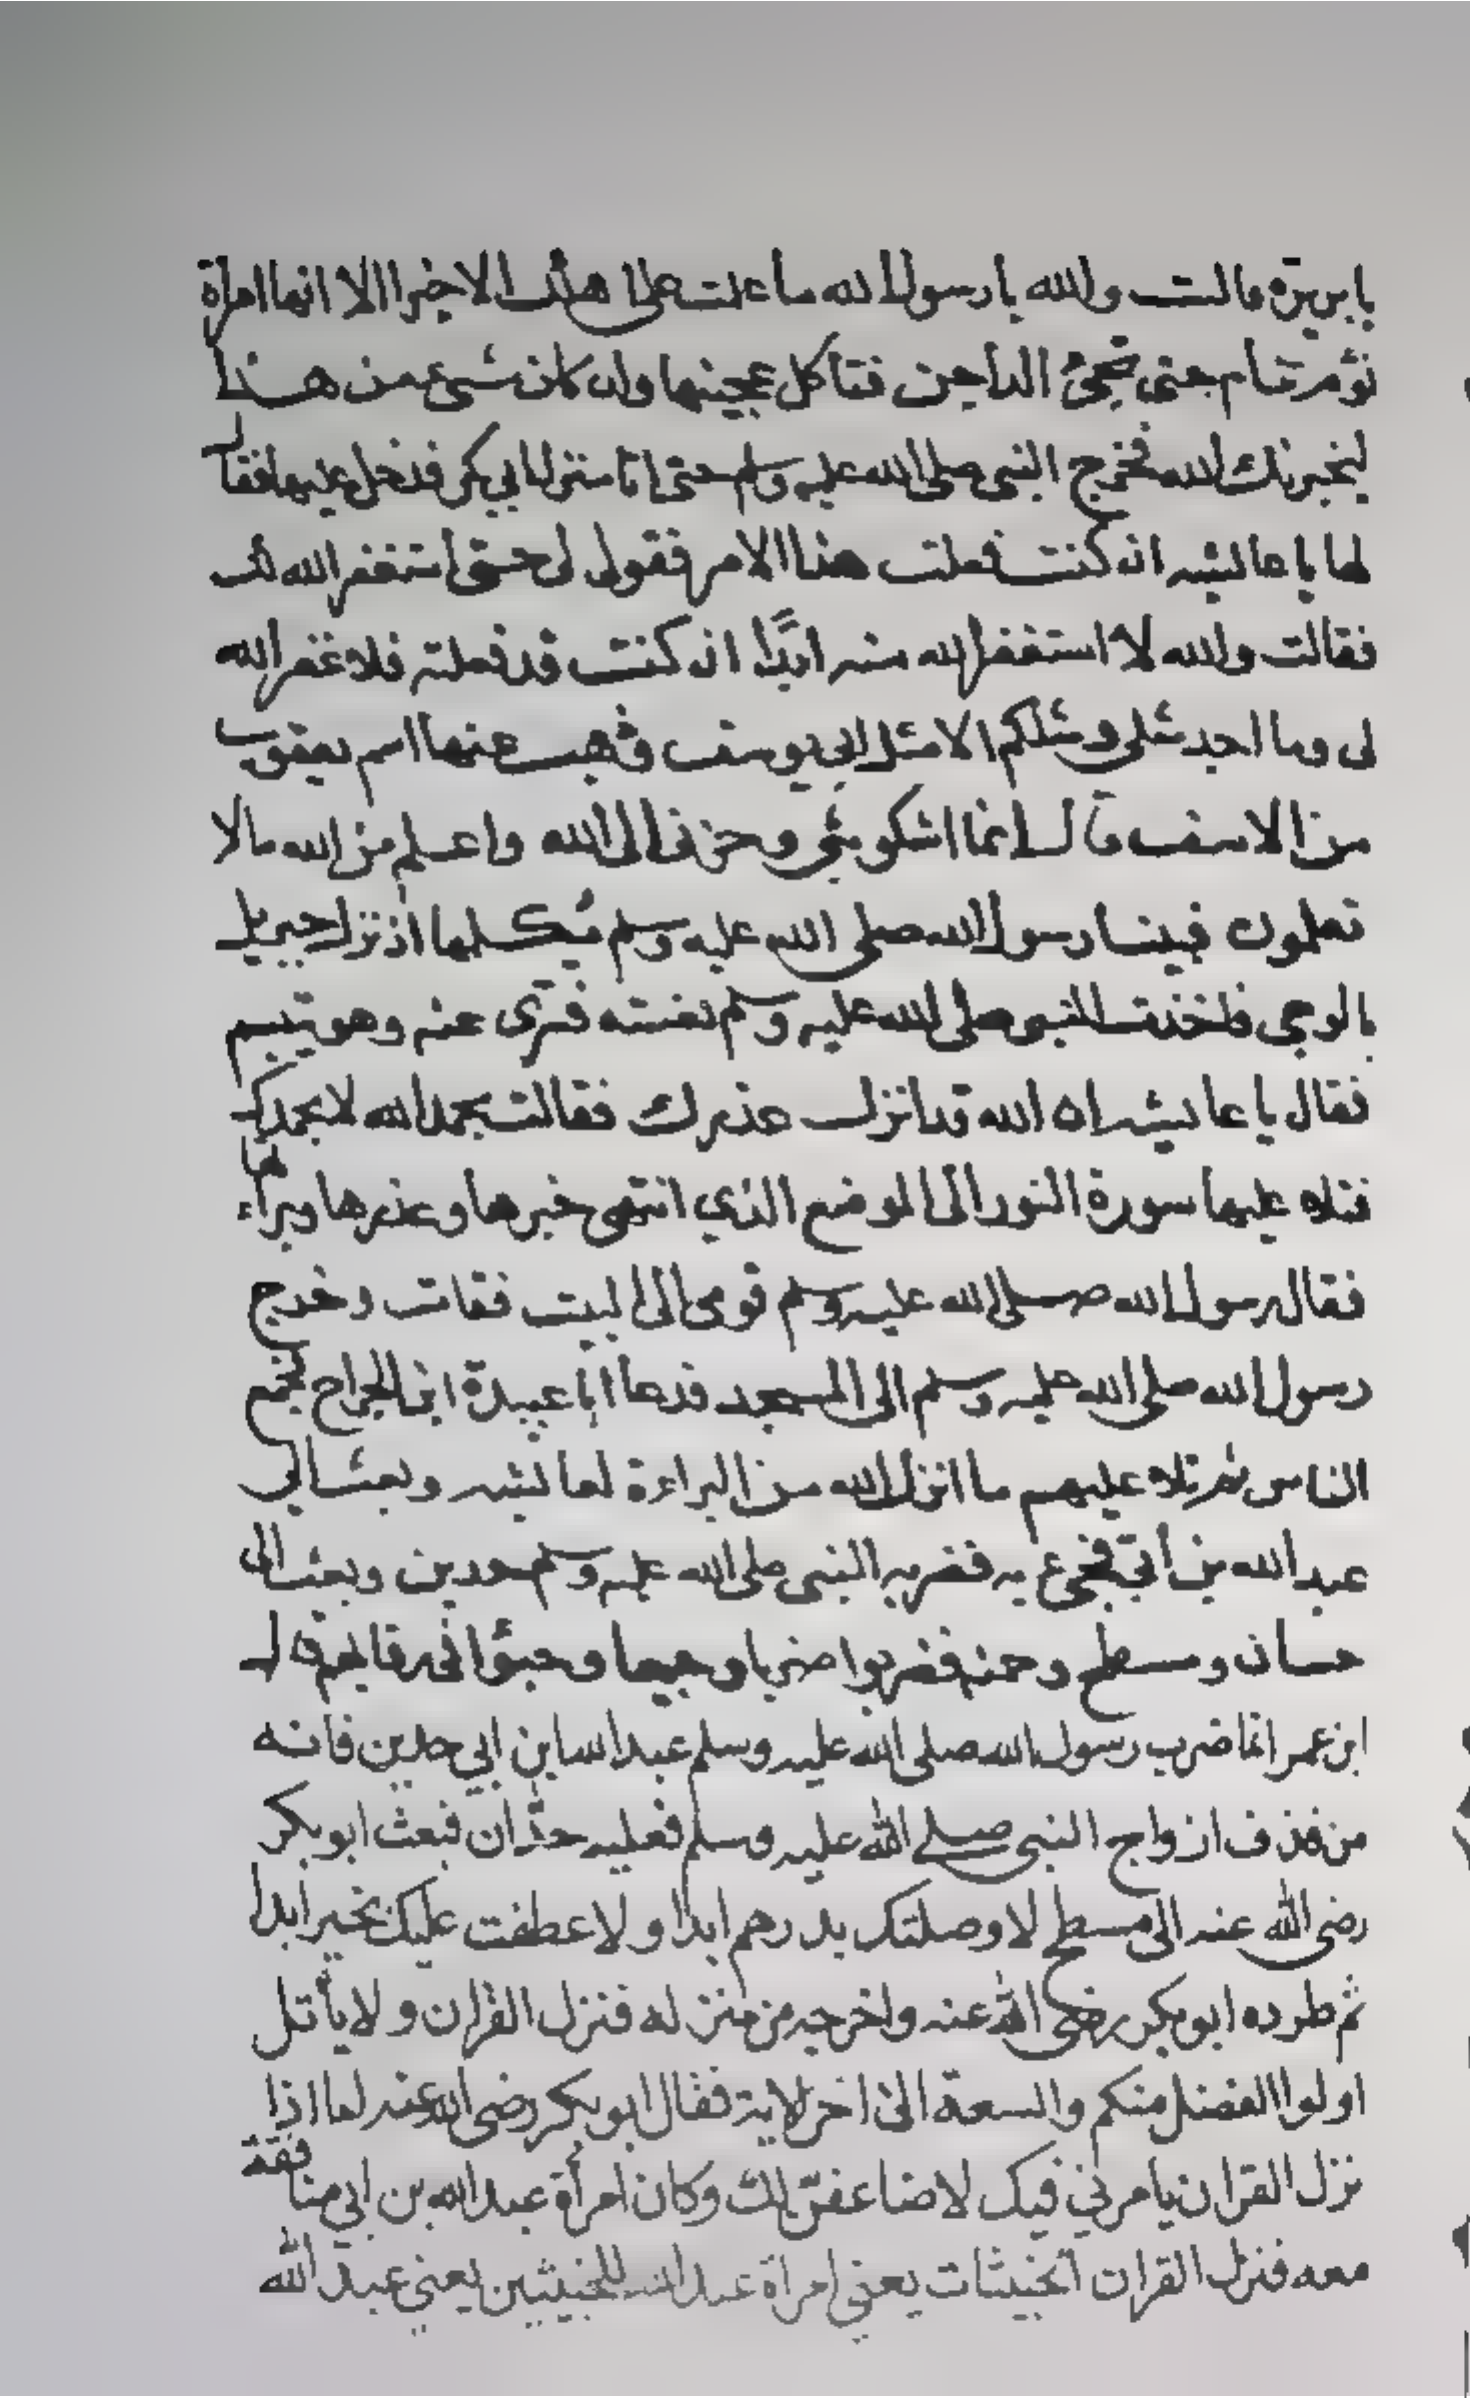 يا بريرة قالت والله يا رسول الله ما علمت على اهلك الا خيرا الا انها امرأة
نؤم تنام حتى تجئ الداجن فتأكل عجينها وان كان شيء من هذا
ليخبرنك الله فخرج النبي صلى الله عليه وسلم حتى اتا منزل ابي بكر فدخل عليها فقال
لها يا عايشه ان كنت فعلت هذا الامر فقولي لي حتى استغفر الله لك
فقالت والله لا استغفر الله منه ابدًا ان كنت قد فعلته فلا غفر الله
لي وما اجد مثلي ومثلكم الا مثل ابي يوسف وذهب عنها اسم يعقوب
من الاسف قال انما اشكو بثي وحزني الى الله واعلم من الله مالا
تعلمون فبينا رسول الله صلى الله عليه وسلم يُكلمها اذ نزل جبريل
بالوحي فاخذت النبي صلى الله عليه وسلم نعسته فسرّى عنه وهو يتبسم
فقال يا عايشه ان الله قد انزل عذرك فقالت بحمد الله لا بحمدك
فتلاه عليها سورة النور الى الموضع الذي انتهى خبرها وعذرها وبراءتها
فقال رسول الله صلى الله عليه وسلم قومي الى البيت فقامت وخرج
رسول الله صلى الله عليه وسلم الى المسجد فدعا ابا عبيدة ابن الجراح فجمع
الناس ثم تلاه عليهم ما انزل الله من البراءة لعايشه وبعث الى
عبد الله بن أبيّ فجيء به فضربه النبي صلى الله عليه وسلم حدين وبعث الى
حسان ومسطح وحمنه فضربوا ضربا وجيعا وجبؤا في رقابهم قال
ابن عمر انما ضرب رسول الله صلى الله عليه وسلم عبد الله ابن ابي حدين فانه
من قذف ازواج النبي صلى الله عليه وسلم فعليه حدّان فبعث ابو بكر
رضى الله عنه الى مسطح لا وصلتك بدرهم ابدا ولا عطفت عليك بخير ابدا
ثم طرده ابو بكر رضى الله عنه واخرجه من منزله فنزل القرآن ولا يأتل
اولوا الفضل منكم والسعة الى اخر الاية فقال ابو بكر رضى الله عنه لما اذا
نزل القرآن يأمرني فيك لاضاعفنّ لك وكان امرأة عبد الله بن ابي منافقة
معه فنزل القرآن الخبيثات يعني امرأة عبد الله للخبيثين يعني عبد الله